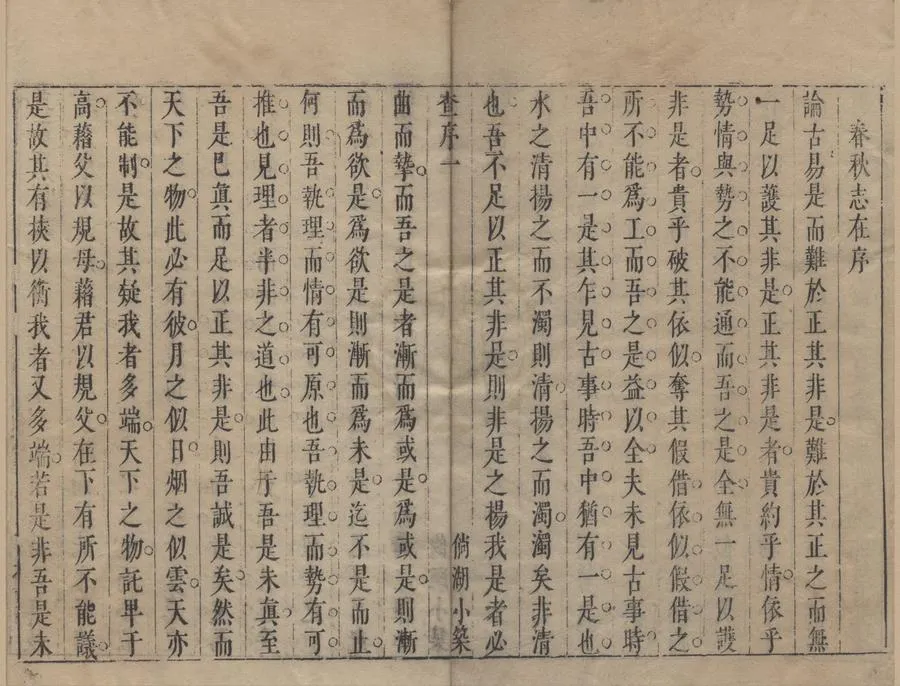 春秋志在序
論古易是而難於正其非是難於其正之而無
一足以護其非是正其非是者貴約乎情依乎
勢情與勢之不能通而吾之是全無一足以護
非是者貴乎破其依似奪其假借依似假借之
所不能為工而吾之是益以全夫未見古事時
吾中有一是其乍見古事時吾中猶有一是也
水之清揚之而不濁則清揚之而濁濁矣非清
也吾不足以正其非是則非是之楊我是者必
查序一
倘湖小築
曲而摯而吾之是者漸而為或是為或是則漸
而為欲是為欲是則漸而為未是迄不是而止
何則吾執理而情有可原也吾執理而勢有可
推也見理者半非之道也此由于吾是未真至
吾是已真而足以正其非是則吾誠是矣然而
天下之物此必有彼月之似日烟之似雲天亦
不能制是故其疑我者多端天下之物託卑于
高藉父以規母藉君以規父在下有所不能議
是故其有挾以衡我者又多端若是非吾是未